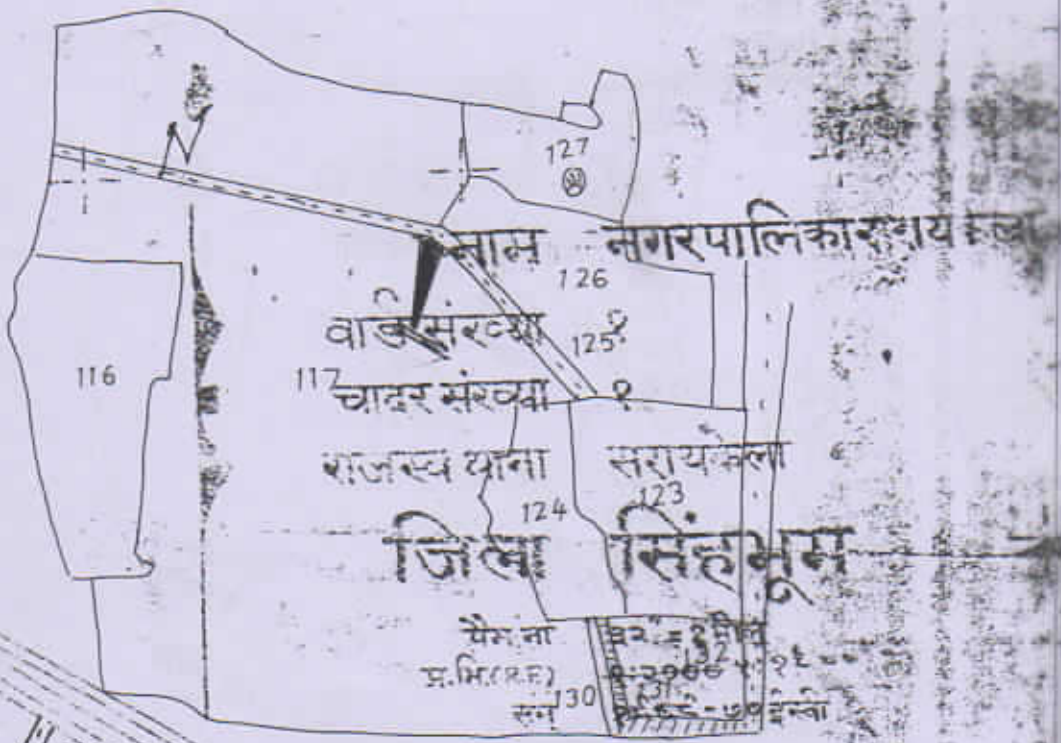 127
नाम नगरपालिका सरायकेला
126
वार्ड संख्या
125
116
117
चादर संख्या १
राजस्व थाना सरायकेला
123
124
जिला सिंहभूम
पैमाना ३२" = १ मील
प्र.भि.(R.F.)
130
सन् ईस्वी